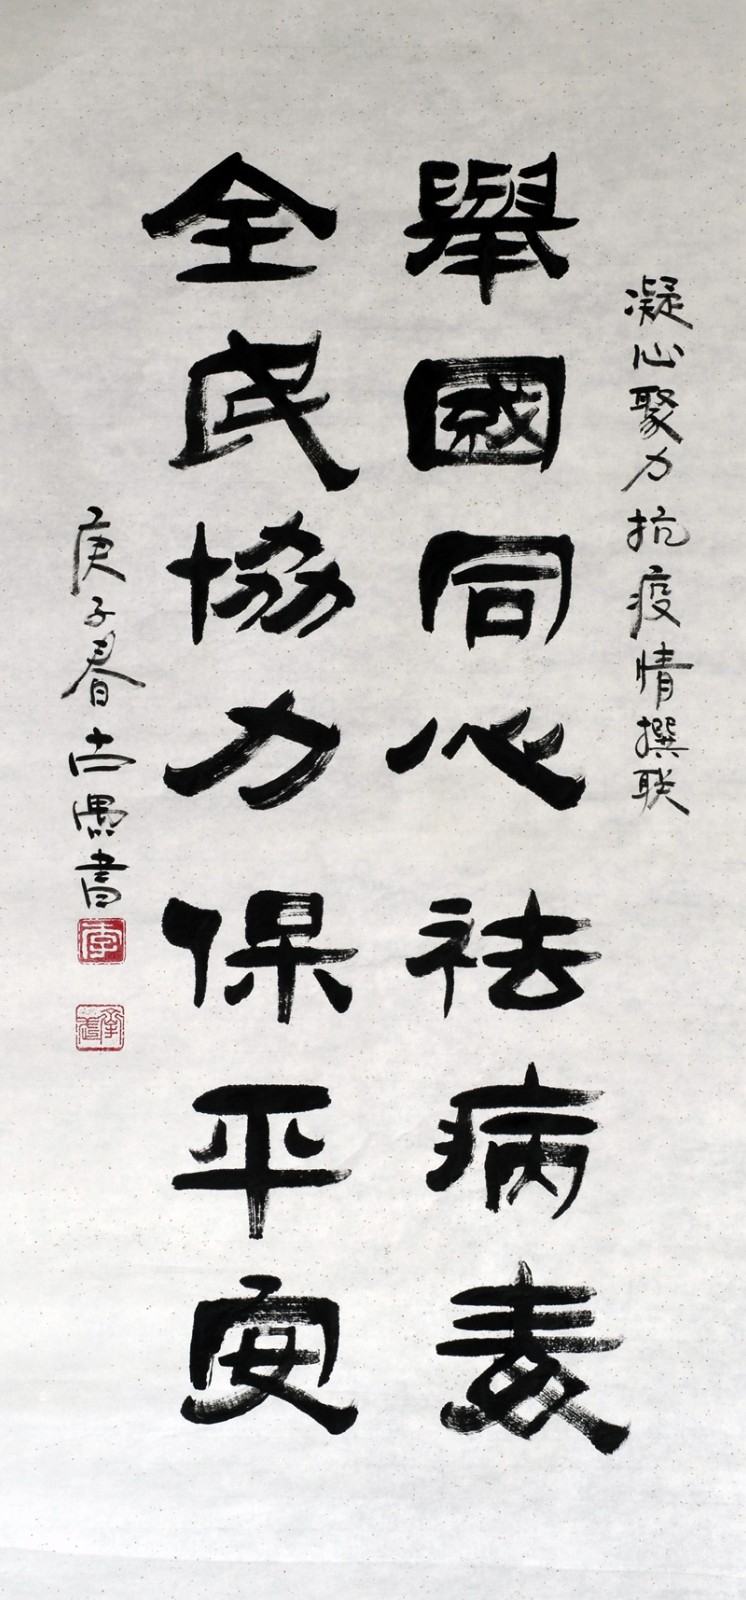 凝心聚力抗疫情撰联
舉國同心祛病毒
全民協力保平安
庚子春古愚書
李